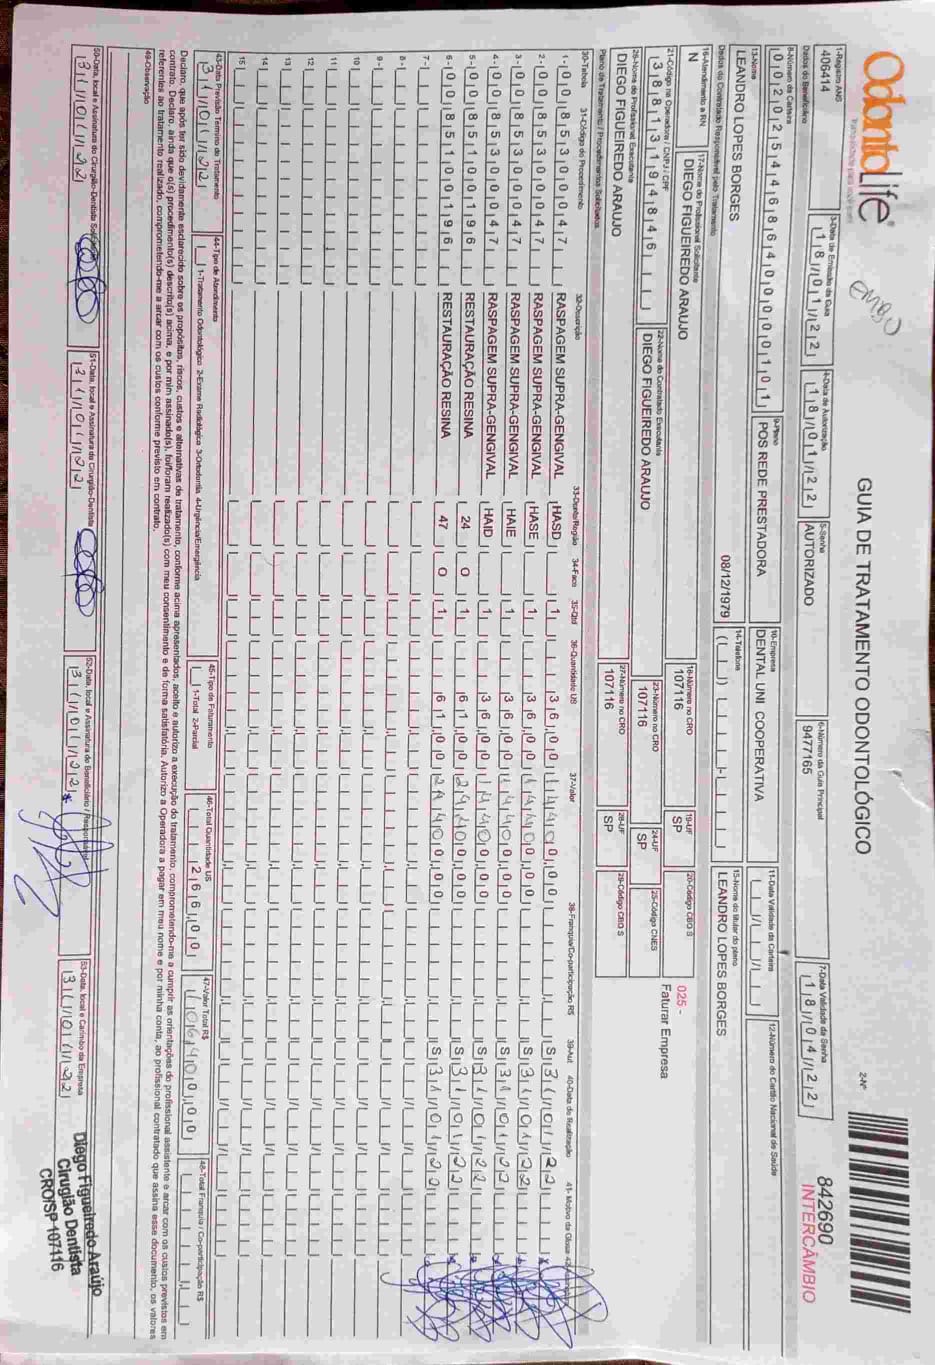 OdontoLife®
GUIA DE TRATAMENTO ODONTOLÓGICO
2-Nº
842690
INTERCÂMBIO
1-Registro ANS
406414
3-Data de Emissão da Guia
18/01/22
4-Data de Autorização
18/01/22
5-Senha
AUTORIZADO
6-Número da Guia Principal
9477165
7-Data Validade da Senha
18/04/22
Dados do Beneficiário
8-Número da Carteira
9-Plano
POS REDE PRESTADORA
10-Empresa
DENTAL UNI COOPERATIVA
11-Data Validade da Carteira
12-Número do Cartão Nacional de Saúde
13-Nome
LEANDRO LOPES BORGES
08/12/1979
14-Telefone
15-Nome do titular do plano
LEANDRO LOPES BORGES
Dados do Contratado Responsável pelo Tratamento
16-Atendimento a RN
N
17-Nome do Profissional Solicitante
DIEGO FIGUEIREDO ARAUJO
18-Número no CRO
107116
19-UF
SP
20-Código CBO S
025 -
Faturar Empresa
21-Código na Operadora / CNPJ / CPF
38813194846
22-Nome do Contratado Executante
DIEGO FIGUEIREDO ARAUJO
23-Número no CRO
107116
24-UF
SP
25-Código CNES
26-Nome do Profissional Executante
DIEGO FIGUEIREDO ARAUJO
27-Número no CRO
107116
28-UF
SP
29-Código CBO S
Plano de Tratamento / Procedimentos Solicitados
30-Tabela 31-Código do Procedimento 32-Descrição 33-Dente/Região 34-Face 35-Qtd 36-Quantidade US 37-Valor 38-Franquia/Co-participação R$ 39-Aut 40-Data de Realização 41- Motivo da Glosa
1- 00 85300047 RASPAGEM SUPRA-GENGIVAL HASD 1 36,00 14400,00 S 31/01/22
2- 00 85300047 RASPAGEM SUPRA-GENGIVAL HASE 1 36,00 14400,00 S 31/01/22
3- 00 85300047 RASPAGEM SUPRA-GENGIVAL HAIE 1 36,00 14400,00 S 31/01/22
4- 00 85300047 RASPAGEM SUPRA-GENGIVAL HAID 1 36,00 14400,00 S 31/01/22
5- 00 85100196 RESTAURAÇÃO RESINA 24 O 1 61,00 24400,00 S 31/01/22
6- 00 85100196 RESTAURAÇÃO RESINA 47 O 1 61,00 24400,00 S 31/01/22
7-
8-
9-
10-
11
12
13
14
15
43-Data Previsão Término do Tratamento
31/01/22
44-Tipo de Atendimento
1-Tratamento Odontológico 2-Exame Radiológico 3-Ortodontia 4-Urgência/Emergência
45-Tipo de Faturamento
1-Total 2-Parcial
46-Total Quantidade US
266,00
47-Valor Total R$
106400,00
48-Total Franquia / Co-participação R$
Declaro, que após ter sido devidamente esclarecido sobre os propósitos, riscos, custos e alternativas de tratamento, conforme acima apresentados, aceito e autorizo a execução do tratamento, comprometendo-me a cumprir as orientações do profissional assistente e arcar com os custos previstos em
contrato. Declaro, ainda que o(s) procedimento(s) descrito(s) acima, e por mim assinado(s), foi/foram realizado(s) com meu consentimento e de forma satisfatória. Autorizo a Operadora a pagar em meu nome e por minha conta, ao profissional contratado que assina esse documento, os valores
referentes ao tratamento realizado, comprometendo-me a arcar com os custos conforme previsto em contrato.
49-Observação
50-Data, local e Assinatura do Cirurgião-Dentista Solicitante
31/01/22
51-Data, local e Assinatura do Cirurgião-Dentista
31/01/22
52-Data, local e Assinatura do Beneficiário / Responsável
31/01/22
53-Data, local e Carimbo da Empresa
31/01/22
Diego Figueiredo Araújo
Cirugião Dentista
CRO/SP 107116